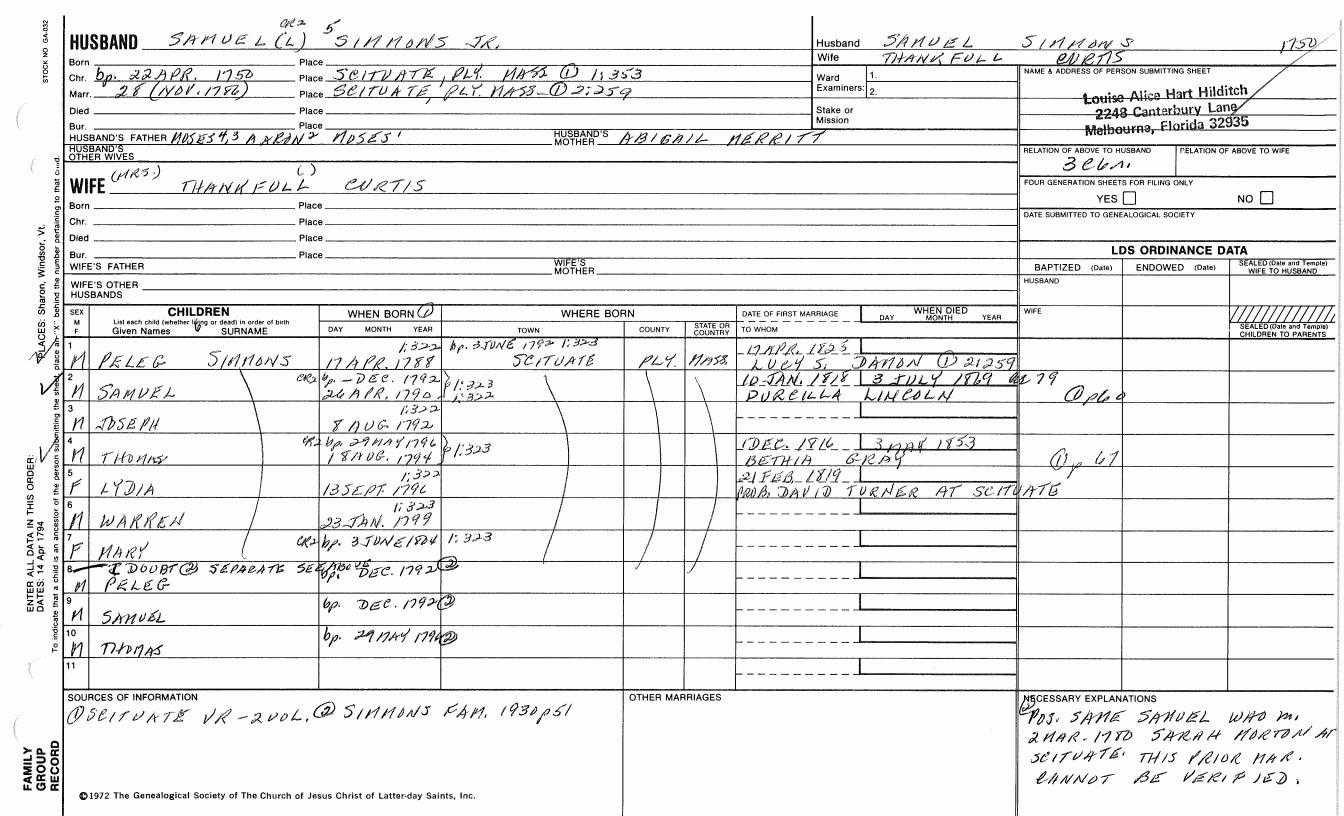 STOCK NO GA-032
HUSBAND SAMUEL (L) CR2 5 SIMMONS JR.
Born Place
Chr. bp. 22 APR. 1750 Place SCITUATE, PLY. MASS ① 1:353
Marr. 28 (NOV. 1786) Place SCITUATE, PLY. MASS ① 2:259
Died Place
Bur. Place
HUSBAND'S FATHER MOSES 4,3 AARON 2 MOSES 1 HUSBAND'S MOTHER ABIGAIL MERRITT
HUSBAND'S OTHER WIVES
Husband SAMUEL SIMMONS 1750
Wife THANKFULL CURTIS
Ward Examiners: 1.
2.
Stake or Mission
NAME & ADDRESS OF PERSON SUBMITTING SHEET
Louise Alice Hart Hilditch
2248 Canterbury Lane
Melbourne, Florida 32935
RELATION OF ABOVE TO HUSBAND RELATION OF ABOVE TO WIFE
FOUR GENERATION SHEETS FOR FILING ONLY
YES NO
DATE SUBMITTED TO GENEALOGICAL SOCIETY
WIFE (MRS.) THANKFULL ( ) CURTIS
Born Place
Chr. Place
Died Place
Bur. Place
WIFE'S FATHER WIFE'S MOTHER
WIFE'S OTHER HUSBANDS
LDS ORDINANCE DATA
BAPTIZED (Date) ENDOWED (Date) SEALED (Date and Temple) WIFE TO HUSBAND
HUSBAND
WIFE
SEALED (Date and Temple) CHILDREN TO PARENTS
SEX M F CHILDREN WHEN BORN ① WHERE BORN DATE OF FIRST MARRIAGE WHEN DIED
List each child (whether living or dead) in order of birth
Given Names SURNAME DAY MONTH YEAR TOWN COUNTY STATE OR COUNTRY TO WHOM DAY MONTH YEAR
1 1:322 bp. 3 JUNE 1792 1:323 17 APR. 1823
M PELEG SIMMONS 17 APR. 1788 SCITUATE PLY. MASS. LUCY S. DAMON ① 2:259
2 CR2 bp. - DEC. 1792 1:323 10 JAN. 1818 3 JULY 1869 79
M SAMUEL 26 APR. 1790 1:322 DURCILLA LINCOLN ① p60
3 1:322
M JOSEPH 8 AUG 1792
4 CR2 bp. 29 MAY 1796 1:323 1 DEC. 1816 3 MAY 1853
M THOMAS 18 AUG. 1794 BETHIA GRAY ① p 67
5 1:322 21 FEB 1819
F LYDIA 13 SEPT 1796 PROB. DAVID TURNER AT SCITUATE
6 1:323
M WARREN 23 JAN. 1799
7 CR2 bp. 3 JUNE 1804 1:323
F MARY
8 I DOUBT ② SEPARATE SEE ABOVE bp. DEC. 1792 ②
M PELEG
9 bp. DEC. 1792 ②
M SAMUEL
10 bp. 29 MAY 1796 ②
M THOMAS
11
SOURCES OF INFORMATION
① SCITUATE VR - 2 VOL. ② SIMMONS FAM. 1930 p51
OTHER MARRIAGES
NECESSARY EXPLANATIONS
POS. SAME SAMUEL WHO M.
2 MAR. 1780 SARAH MORTON AT
SCITUATE. THIS PRIOR MAR.
CANNOT BE VERIFIED.
©1972 The Genealogical Society of The Church of Jesus Christ of Latter-day Saints, Inc.
FAMILY
GROUP
RECORD
ENTER ALL DATA IN THIS ORDER:
DATES: 14 Apr 1794
PLACES: Sharon, Windsor, Vt.
To indicate that a child is an ancestor of the person submitting the sheet, place an "X" behind the number pertaining to that child.